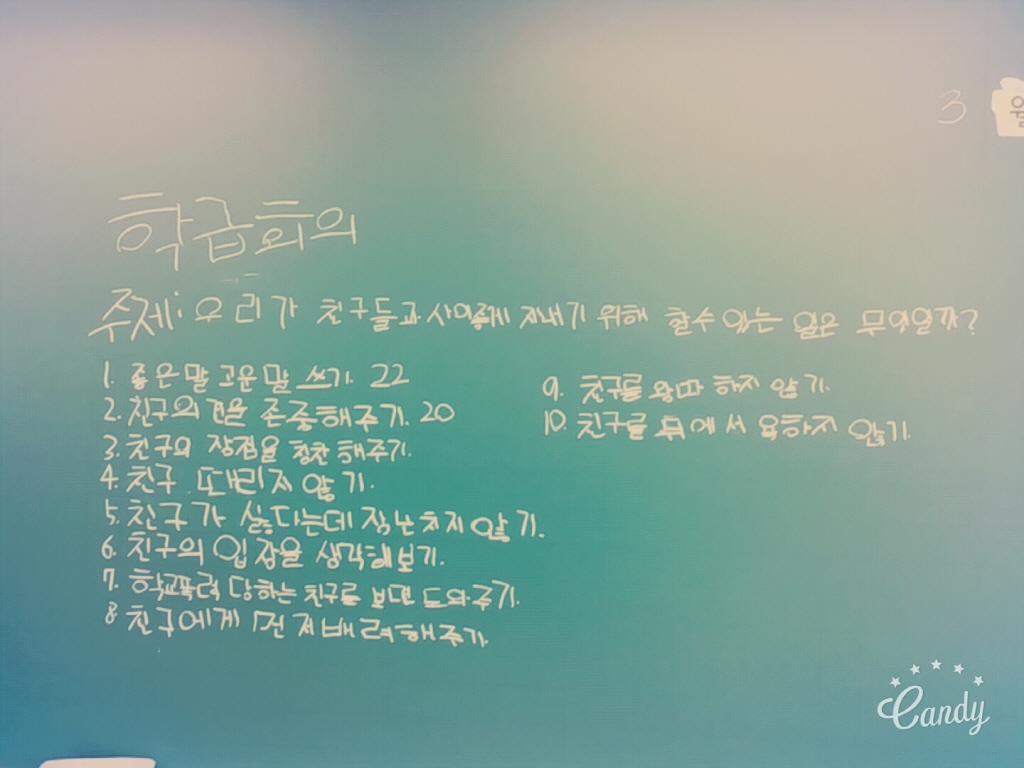 3 월
학급회의
주제: 우리가 친구들과 사이좋게 지내기 위해 할수 있는 일은 무엇일까?
1. 좋은말 고운말 쓰기. 22
2. 친구의 견을 존중해주기. 20
3. 친구의 장점을 칭찬해주기.
4. 친구 때리지 않기.
5. 친구가 싫다는데 장난치지 않기.
6. 친구의 입장을 생각해보기.
7. 학교폭력 당하는 친구를 보면 도와주기.
8 친구에게 먼저 배려해주기.
9. 친구를 왕따 하지 않기.
10. 친구를 뒤에서 욕하지 않기.
Candy